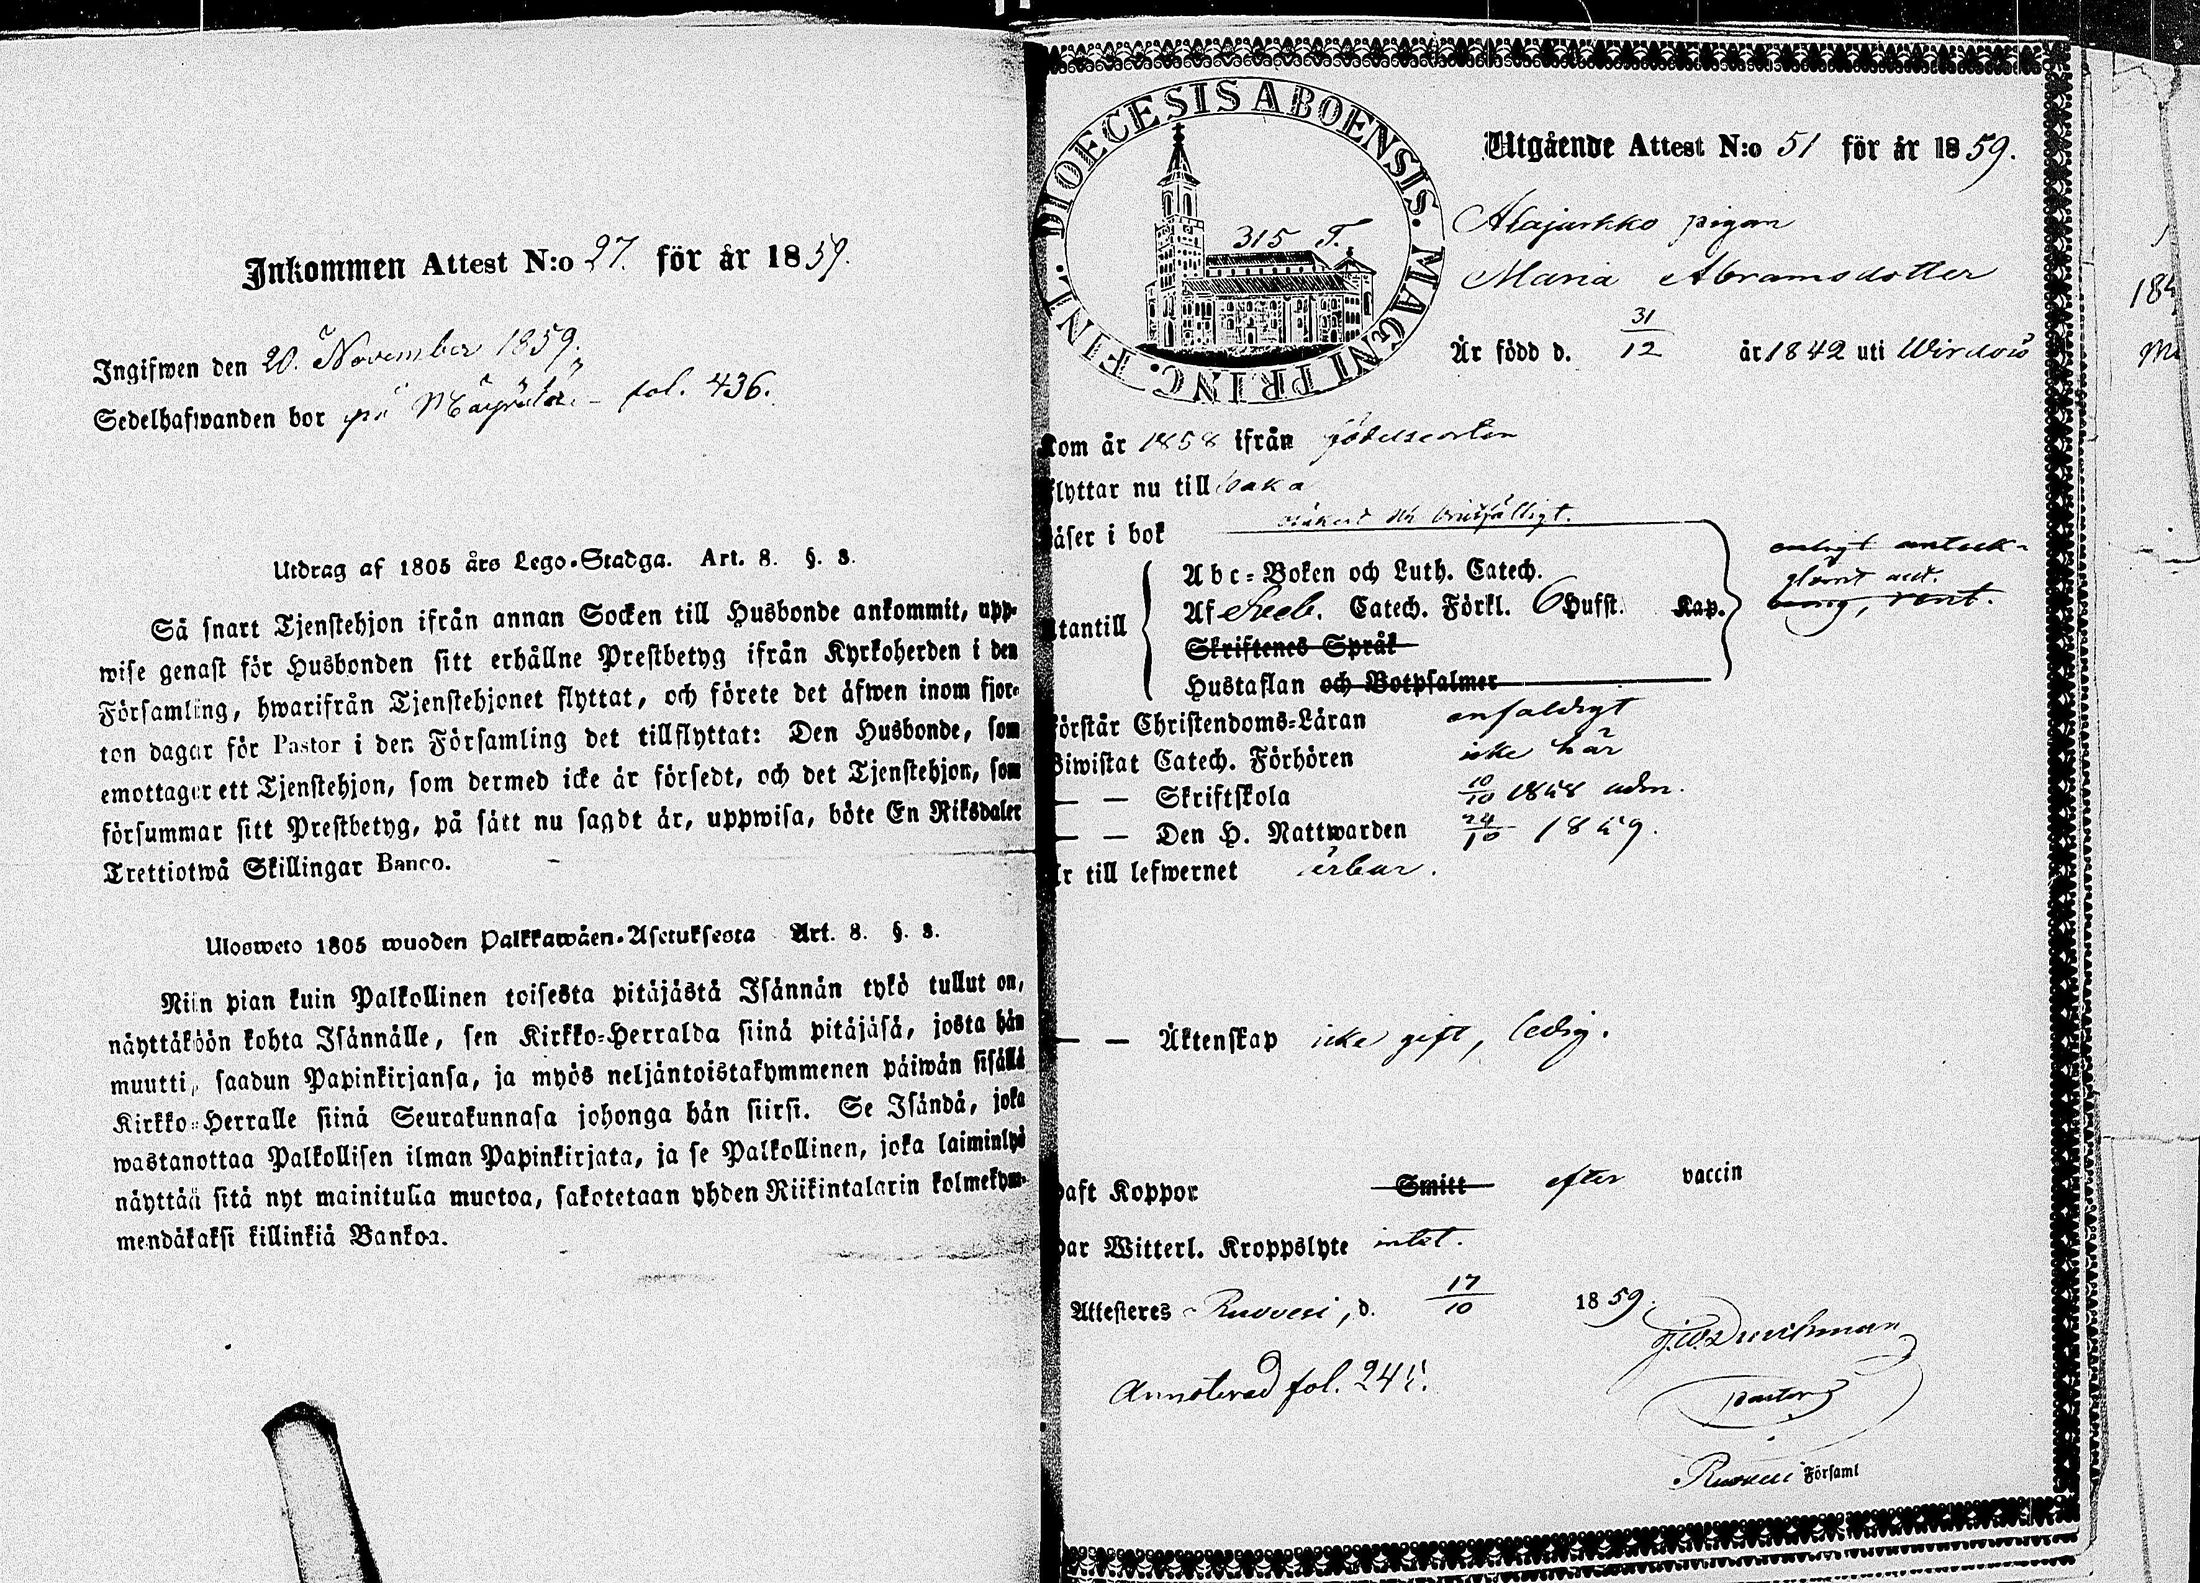 Inkommen Attest N:o 27. för år 1859.
Ingifwen den 20. November 1859.
Sedelhafwanden bor på fol. 436.
Utdrag af 1805 års Lego-Stadga. Art. 8. §. 3.
Så snart Tjenstehjon ifrån annan Socken till Husbonde ankommit, upp-
wise genast för Husbonden sitt erhållne Prestbetyg ifrån Kyrkoherden i den
Församling, hwarifrån Tjenstehjonet flyttat, och förete det äfwen inom fjor-
ton dagar för Pastor i den Församling det tillflyttat: Den Husbonde, som
emottager ett Tjenstehjon, som dermed icke är försedt, och det Tjenstehjon, som
försummar sitt Prestbetyg, på sätt nu sagdt är, uppwisa, böte En Riksdaler
Trettiotwå Skillingar Banco.
Ulosweto 1805 wuoden Palkkawäen-Asetuksesta Art. 8. §. 3.
Niin pian kuin Palkollinen toisesta pitäjästä Isännän tykö tullut on,
näyttäköön kohta Isännälle, sen Kirkko-Herralda siinä pitäjäsä, josta hän
muutti, saadun Papinkirjansa, ja myös neljäntoistakymmenen päiwän sisällä
Kirkko-Herralle siinä Seurakunnasa johonga hän siirsi. Se Isändä, joka
wastanottaa Palkollisen ilman Papinkirjata, ja se Palkollinen, joka laiminlyö
näyttää sitä nyt mainitulla muotoa, sakotetaan yhden Riikintalarin kolmekym-
mendäkaksi killinkiä Bankoa.
DIOECESIS ABOENSIS. MAGNI PRINC. FINL.
315 T.
Utgående Attest N:o 51 för år 1859.
Alajarkko pigan
Maria Abramsdotter
Är född d. 31/12 år 1842 uti Wirdois
Kom år 1858 ifrån födelseorten
flyttar nu till baka
Läser i bok
Abc-Boken och Luth. Catech.
Af Sveb. Catech. Förkl. 6 Hufst. Kap.
Utantill
Skriftenes Språk
Hustaflan och Botpsalmer
Förstår Christendoms-Läran enfaldigt
Biwistat Catech. Förhören icke här
— — Skriftskola 10/10 1858 adm.
— — Den H. Nattwarden 24/10 1859.
Är till lefwernet ärbar.
— — Äktenskap icke gift, ledig.
Haft Koppor Smitt efter vaccin
Har Witterl. Kroppslyte intet.
Attesteres Ruovesi, d. 17/10 1859.
pastor
Annoterad fol.
Ruovesi Församl